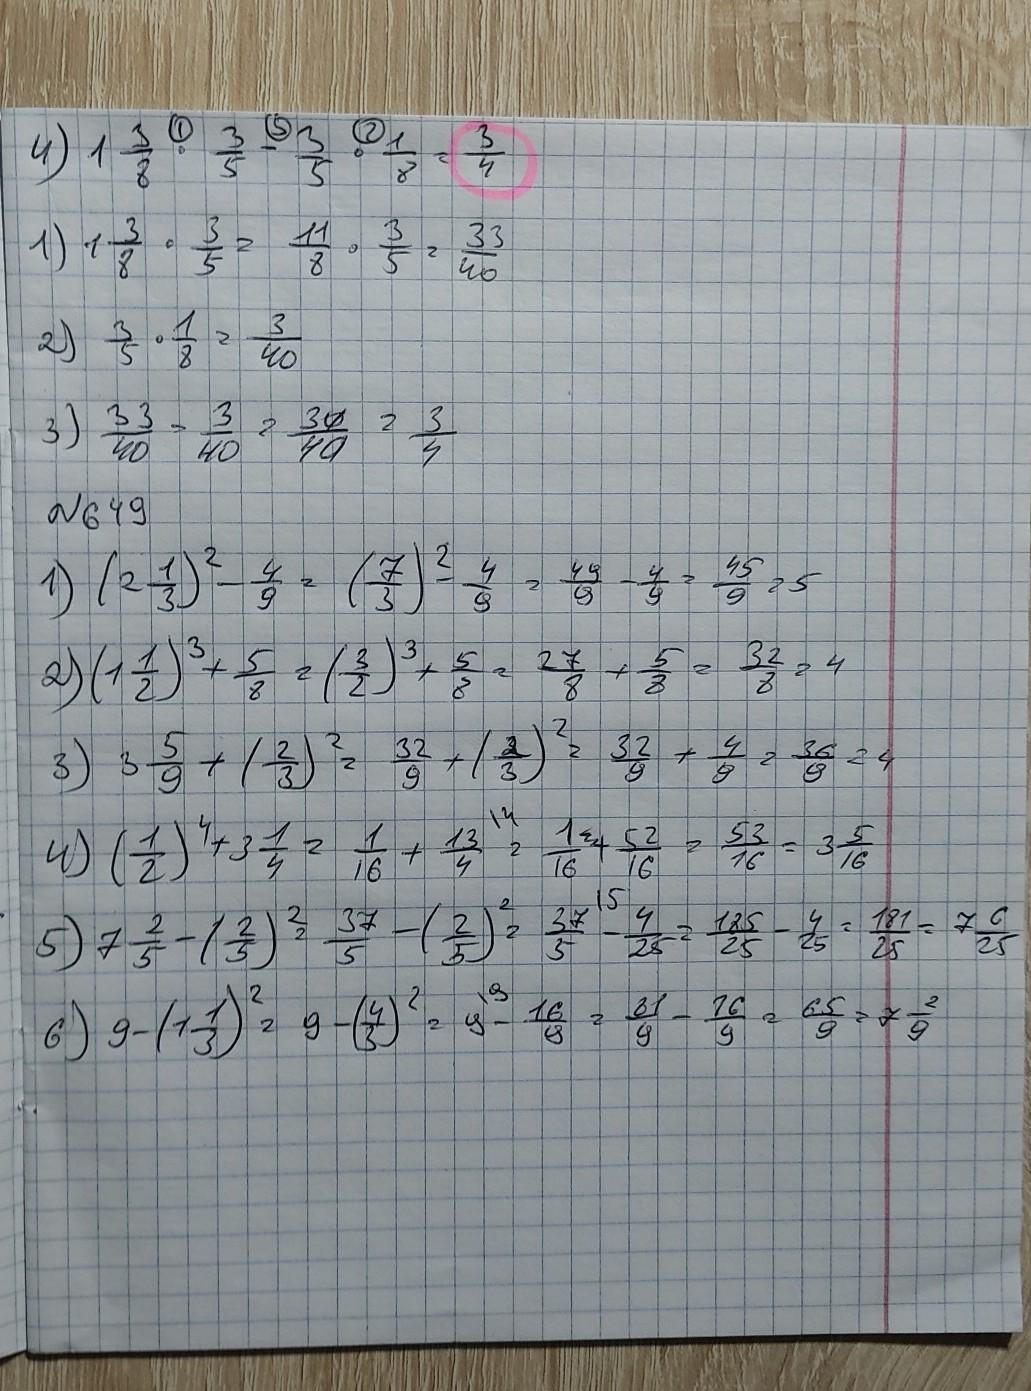 4) 1 3/8 ① · 3/5 ③ - 3/5 ② · 1/8 = 3/4
1) 1 3/8 · 3/5 = 11/8 · 3/5 = 33/40
2) 3/5 · 1/8 = 3/40
3) 33/40 - 3/40 = 30/40 = 3/4
№649
1) (2 1/3)² - 4/9 = (7/3)² - 4/9 = 49/9 - 4/9 = 45/9 = 5
2) (1 1/2)³ + 5/8 = (3/2)³ + 5/8 = 27/8 + 5/8 = 32/8 = 4
3) 3 5/9 + (2/3)² = 32/9 + (2/3)² = 32/9 + 4/9 = 36/9 = 4
4) (1/2)⁴ + 3 1/4 = 1/16 + 13/4 \4 = 1/16 + 52/16 = 53/16 = 3 5/16
5) 7 2/5 - (2/5)² = 37/5 - (2/5)² = 37/5 \5 - 4/25 = 185/25 - 4/25 = 181/25 = 7 6/25
6) 9 - (1 1/3)² = 9 - (4/3)² = 9 \9 - 16/9 = 81/9 - 16/9 = 65/9 = 7 2/9